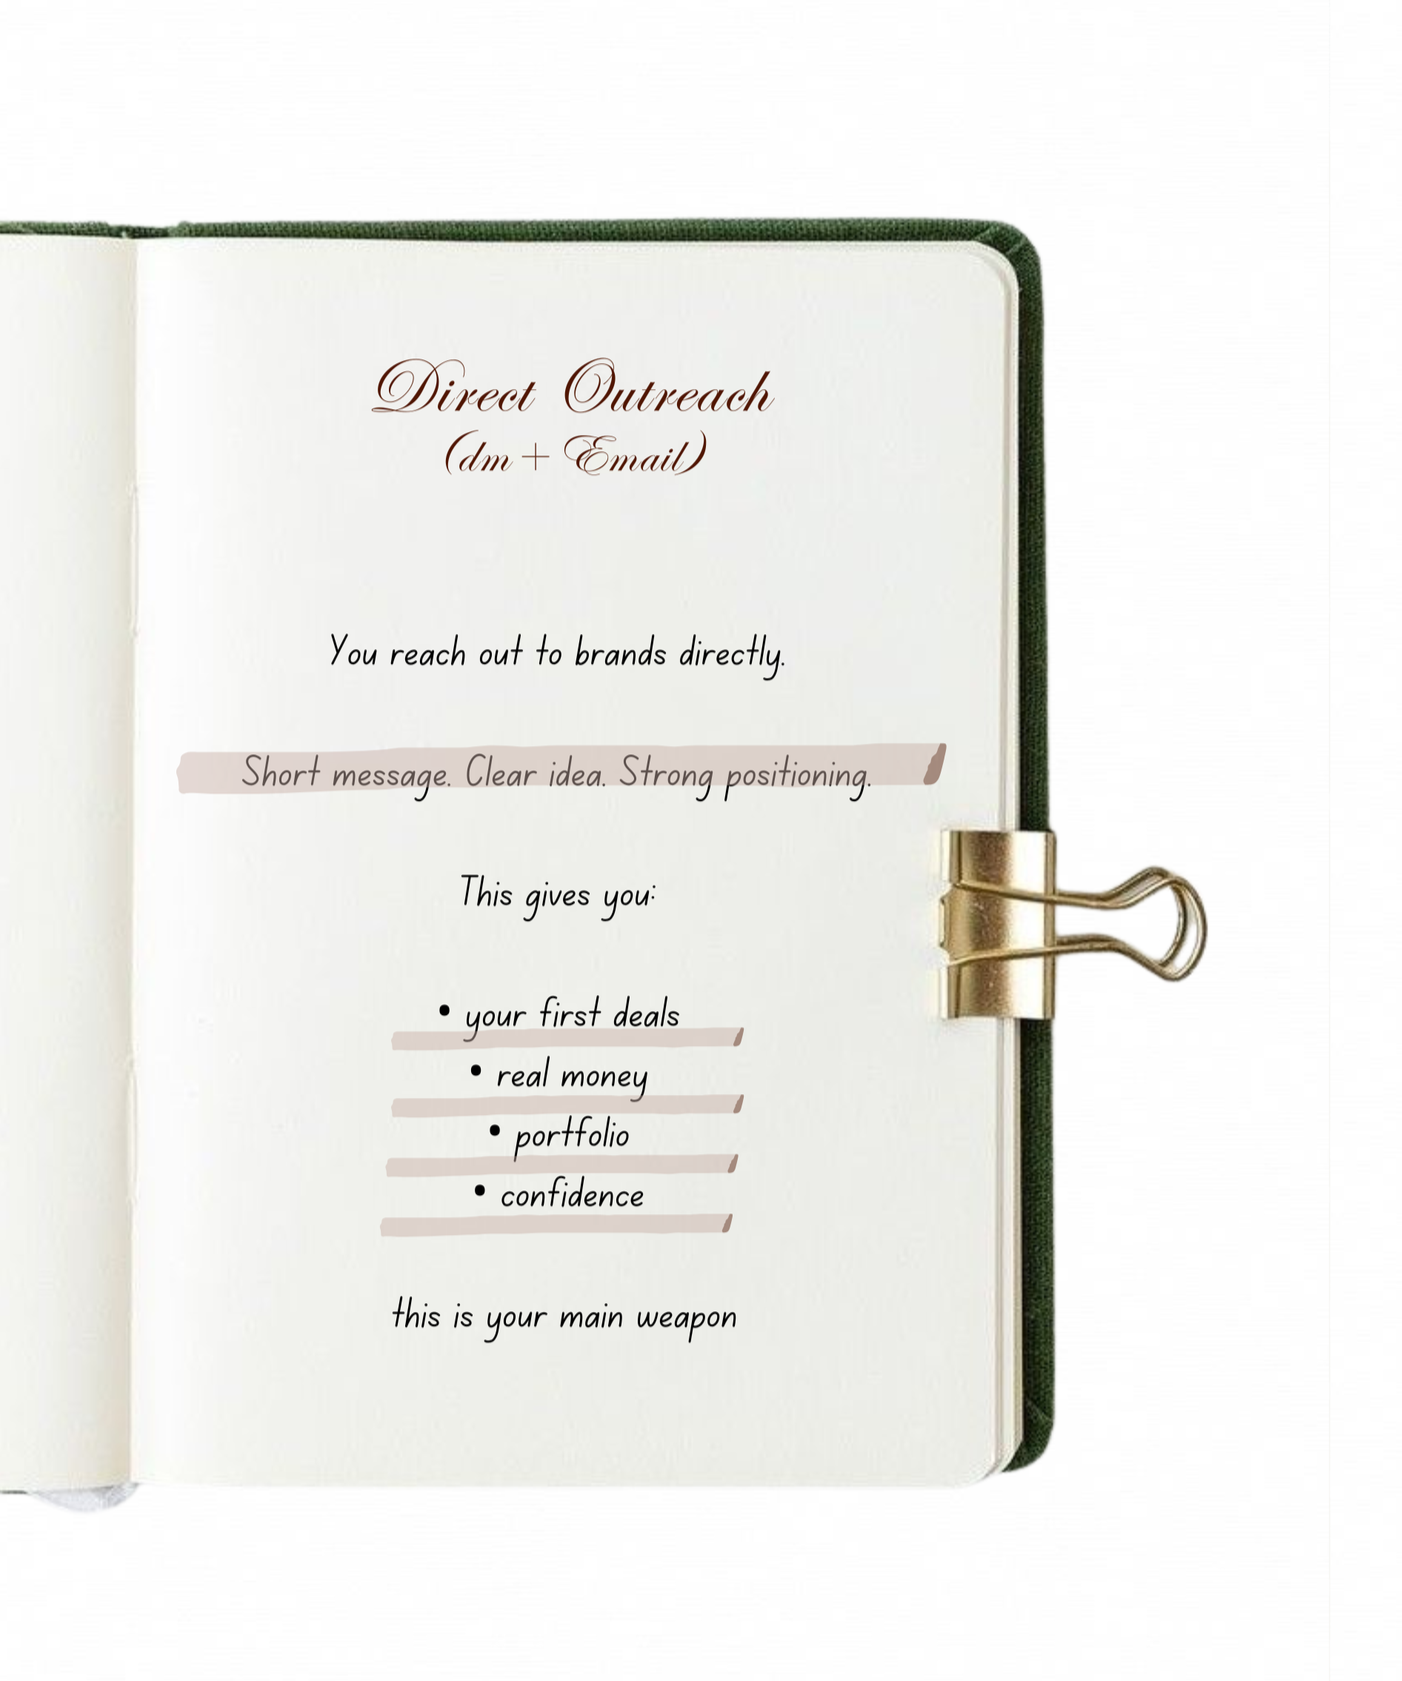 Direct Outreach
(dm + Email)
You reach out to brands directly.
Short message. Clear idea. Strong positioning.
This gives you:
• your first deals
• real money
• portfolio
• confidence
this is your main weapon